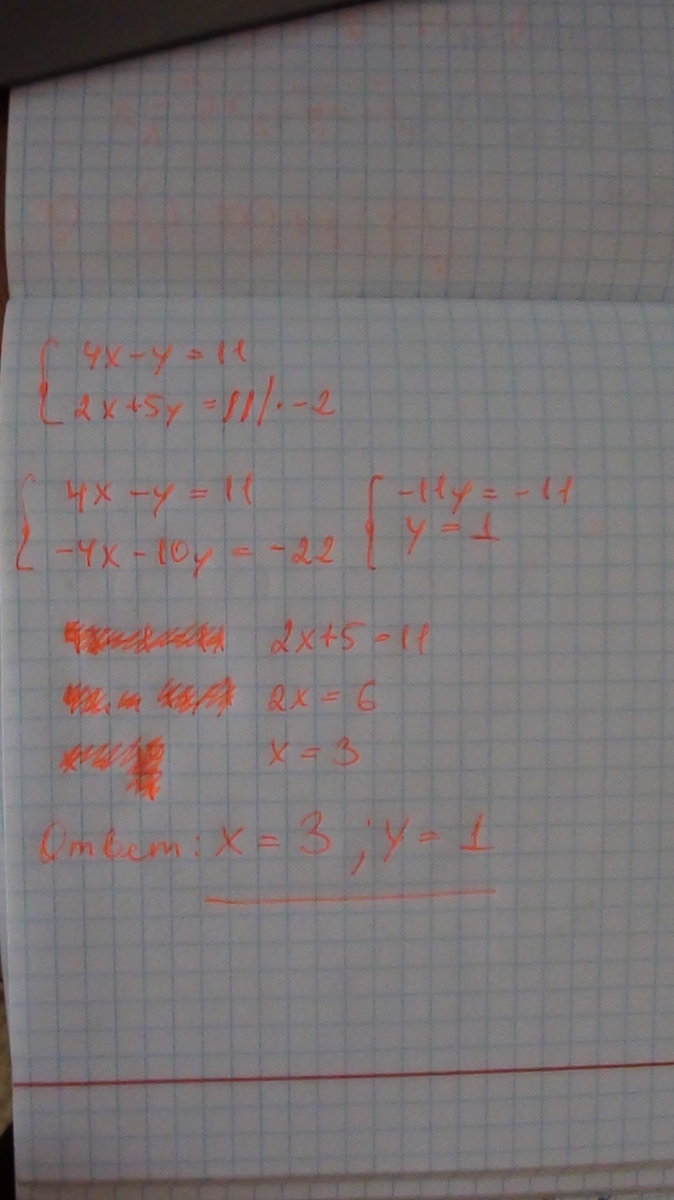 4x-y=11
2x+5y=11/·-2
4x-y=11
-4x-10y=-22
-11y=-11
y=1
2x+5=11
2x=6
x=3
Ответ: x=3; y=1